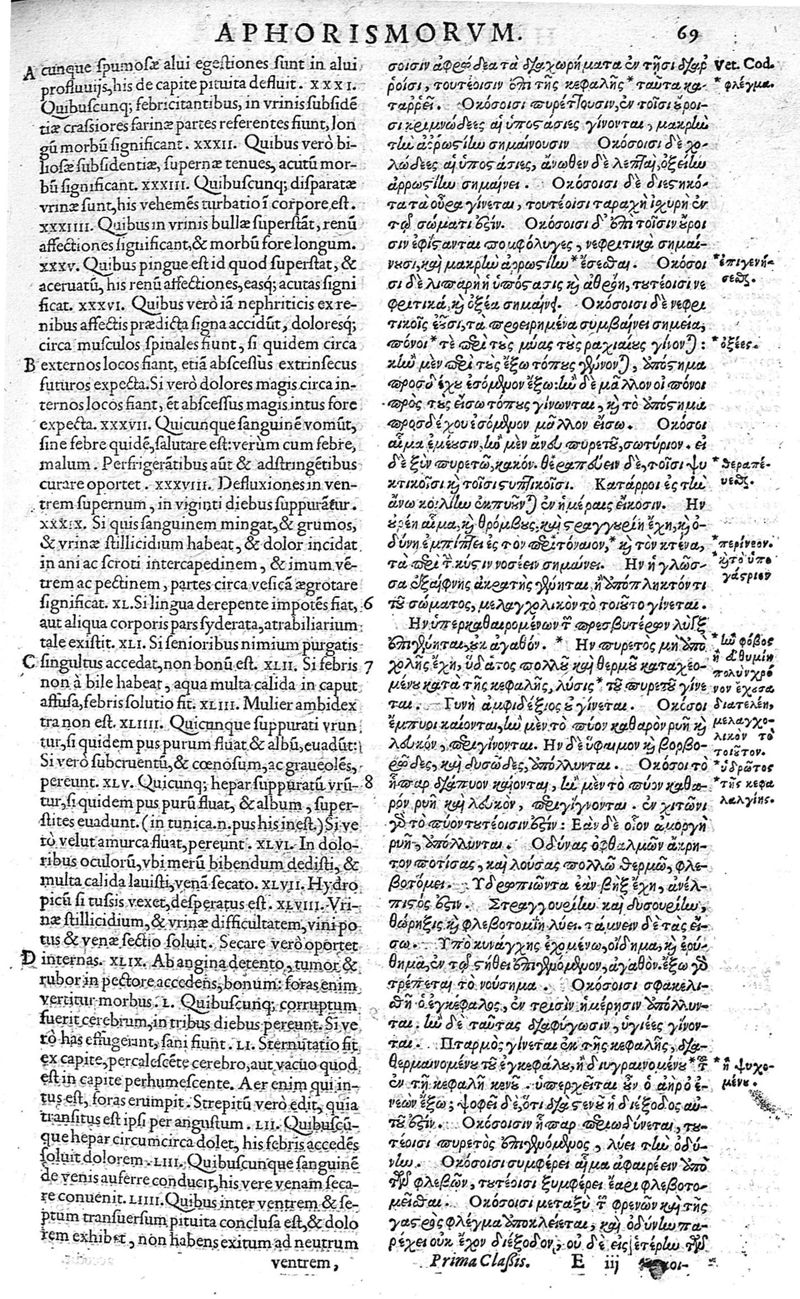 APHORISMORVM. 69
A cunque spumosæ alui egestiones sunt in alui
profluuijs, his de capite pituita defluit. XXXI.
Quibuscunq; febricitantibus, in vrinis subsidē
tiæ crassiores farinæ partes referentes fiunt, lon
gū morbū significant. XXXII. Quibus verò bi-
liosæ subsidentiæ, supernæ tenues, acutū mor-
bū significant. XXXIII. Quibuscunq; disparatæ
vrinæ sunt, his vehemēs turbatio ī corpore, est.
XXXIIII. Quibus in vrinis bullæ superstāt, renū
affectiones significant, & morbū fore longum.
XXXV. Quibus pingue est id quod superstat, &
aceruatū, his renū affectiones, easq; acutas signi
ficat. XXXVI. Quibus verò iā nephriticis ex re-
nibus affectis prædicta signa accidūt, doloresq;
circa musculos spinales fiunt, si quidem circa
B externos locos fiant, etiā abscessus extrinsecus
futuros expecta. Si verò dolores magis circa in-
ternos locos fiant, ēt abscessus magis intus fore
expecta. XXXVII. Quicunque sanguinē vomūt,
sine febre quidē, salutare est: verùm cum febre,
malum. Perfrigerātibus aūt & adstringētibus
curare oportet. XXXVIII. Defluxiones in ven-
trem supernum, in viginti diebus suppurātur.
XXXIX. Si quis sanguinem mingat, & grumos,
& vrinæ stillicidium habeat, & dolor incidat
in ani ac scroti intercapedinem, & imum vē-
trem ac pectinem, partes circa vesicā ægrotare
significat. XL. Si lingua derepente impotēs fiat, 6
aut aliqua corporis pars syderata, atrabiliarium
tale existit. XLI. Si senioribus nimium purgatis
C singultus accedat, non bonū est. XLII. Si febris 7
non à bile habeat, aqua multa calida in caput
affusa, febris solutio fit. XLIII. Mulier ambidex
tra non est. XLIIII. Quicunque suppurati vrun
tur, si quidem pus purum fluat & albū, euadūt:
Si verò subcruentū, & cœnosum, ac graueolēs,
pereunt. XLV. Quicunq; hepar suppuratū vrū- 8
tur, si quidem pus purū fluat, & album, super-
stites euadunt. (in tunica. n. pus his inest.) Si ve
rò velut amurca fluat, pereunt. XLVI. In dolo-
ribus oculorū, vbi merū bibendum dedisti, &
multa calida lauisti, venā secato. XLVII. Hydro
picū si tussis vexet, desperatus est. XLVIII. Vri-
næ stillicidium, & vrinæ difficultatem, vini po
tus & venæ sectio soluit. Secare verò oportet
D internas. XLIX. Ab angina detento, tumor &
rubor in pectore accedens, bonum: foras enim
vertitur morbus. L. Quibuscunq; corruptum
fuerit cerebrum, in tribus diebus pereunt. Si ve
rò has effugerint, sani fiunt. LI. Sternutatio fit
ex capite, percalescēte cerebro, aut vacuo quod
est in capite perhumescente. Aer enim qui in-
tus est, foras erumpit. Strepitū verò edit, quia
transitus est ipsi per angustum. LII. Quibuscū-
que hepar circumcirca dolet, his febris accedēs
soluit dolorem. LIII. Quibuscunque sanguinē
de venis auferre conducit, his vere venam seca-
re conuenit. LIIII. Quibus inter ventrem & se-
ptum transuersum pituita conclusa est, & dolo
rem exhibet, non habens exitum ad neutrum
ventrem,
σοισιν ἀφρώδεα τὰ διαχωρήματα ἐν τῇσι διαρ
ῥοίσι, τουτέοισιν ἀπὸ τῆς κεφαλῆς * ταῦτα κα-
ταρρεῖ. Ὁκόσοισι πυρέττουσιν, ἐν τοῖσι οὔροι-
σι κριμνώδεες αἱ ὑποστάσιες γίνονται, μακρὴν
τὴν ἀρρωστίην σημαίνουσιν Ὁκόσοισι δὲ χο-
λώδεες αἱ ὑποστάσιες, ἄνωθεν δὲ λεπταὶ, ὀξείην
ἀρρωστίην σημαίνει. Ὁκόσοισι δὲ διεστηκό-
τα τὰ οὖρα γίνεται, τουτέοισι ταραχὴ ἰσχυρὴ ἐν
τῷ σώματί ἐστιν. Ὁκόσοισι δ' ἐπὶ τοῖσιν οὔροι
σιν ἐφίστανται πομφόλυγες, νεφριτικὰ σημαί-
νουσι, καὶ μακρὴν ἀρρωστίην * ἔσεσθαι. Ὁκόσοι
σι δὲ λιπαρὴ ἡ ὑπόστασις καὶ ἀθρόη, τυτέοισι νε
φριτικά, καὶ ὀξέα σημαίνει. Ὁκόσοισι δὲ νεφρι
τικοῖς ἐοῦσι, τὰ προειρημένα συμβαίνει σημεῖα,
πόνοι * τε περὶ τοὺς μύας τοὺς ῥαχιαίους γίνονται:
κἢν μὲν περὶ τοὺς ἔξω τόπους γένωνται, ἀπόστημα
προσδέχου ἐσόμενον ἔξω: ἢν δὲ μᾶλλον οἱ πόνοι
πρὸς τοὺς εἴσω τόπους γίνωνται, καὶ τὸ ἀπόστημα
προσδέχου ἐσόμενον μᾶλλον εἴσω. Ὁκόσοι
αἷμα ἐμέουσιν, ἢν μὲν ἄνευ πυρετοῦ, σωτύριον. εἰ
δὲ ξὺν πυρετῷ, κακόν. θεραπεύειν δὲ, τοῖσι ψυ
κτικοῖσι καὶ τοῖσι στυπτικοῖσι. Κατάρροι ἐς τὴν
ἄνω κοιλίην ἐκπυοῦνται ἐν ἡμέραις εἴκοσιν. Ἢν
οὐρέῃ αἷμα, καὶ θρόμβους, καὶ στραγγουρίη ἔχῃ, καὶ ὀ-
δύνη ἐμπίπτει ἐς τὸν περιτόναιον, * καὶ τὸν κτένα,
τὰ περὶ τὴν κύστιν νοσέειν σημαίνει. Ἢν ἡ γλῶσ-
σα ἐξαίφνης ἀκρατὴς γένηται, ἢ ἀπόπληκτόν τι
τοῦ σώματος, μελαγχολικὸν τὸ τοιοῦτο γίνεται.
Ἢν ὑπερκαθαιρομένων τῶν πρεσβυτέρων λὺγξ
ἐπιγένηται, οὐκ ἀγαθόν. * Ἢν πυρετὸς μὴ ἀπὸ
χολῆς ἔχῃ, ὕδατος πολλοῦ καὶ θερμοῦ καταχεο-
μένου κατὰ τῆς κεφαλῆς, λύσις * τοῦ πυρετοῦ γίνε
ται. Γυνὴ ἀμφιδέξιος οὐ γίνεται. Ὁκόσοι
ἔμπυοι καίονται, ἢν μὲν τὸ πῦον καθαρὸν ῥυῇ καὶ
λευκόν, περιγίνονται. Ἢν δὲ ὕφαιμον καὶ βορβο-
ρῶδες, καὶ δυσῶδες, ἀπόλλυνται. Ὁκόσοι τὸ
ἧπαρ διάπυον καίονται, ἢν μὲν τὸ πῦον καθα-
ρὸν ῥυῇ καὶ λευκόν, περιγίγνονται. ἐν χιτῶνι
γὰρ τὸ πῦον τυτέοισίν ἐστιν: Ἐὰν δὲ οἷον ἀμοργὴ
ῥυῇ, ἀπόλλυνται. Ὀδύνας ὀφθαλμῶν ἄκρη-
τον ποτίσας, καὶ λούσας πολλῷ θερμῷ, φλε-
βοτόμει. Ὑδρωπιῶντα ἐὰν βὴξ ἔχῃ, ἀνέλ-
πιστός ἐστιν. Στραγγουρίην καὶ δυσουρίην,
θώρηξις καὶ φλεβοτομίη λύει. τάμνειν δὲ τὰς εἴ-
σω. Ὑπὸ κυνάγχης ἐχομένῳ, οἴδημα, καὶ ἐρύ-
θημα, ἐν τῷ στήθει ἐπιγενόμενον, ἀγαθόν. ἔξω γὰρ
τρέπεται τὸ νούσημα. Ὁκόσοισι σφακελι-
σθῇ ὁ ἐγκέφαλος, ἐν τρισὶν ἡμέρῃσιν ἀπόλλυν-
ται. ἢν δὲ ταύτας διαφύγωσιν, ὑγιέες γίνον-
ται. Πταρμὸς γίνεται ἐκ τῆς κεφαλῆς, δια-
θερμαινομένου τοῦ ἐγκεφάλου, ἢ διυγραινομένου * τοῦ
ἐν τῇ κεφαλῇ κενοῦ. ὑπερχεῖται οὖν ὁ ἀὴρ ὁ ἐ-
νεὼν ἔξω; ψοφεῖ δὲ, ὅτι διὰ στενοῦ ἡ διέξοδος αὐ-
τοῦ ἐστιν. Ὁκόσοισιν ἧπαρ περιωδυνᾶται, τυ-
τέοισι πυρετὸς ἐπιγενόμενος, λύει τὴν ὀδύ-
νην. Ὁκόσοισι συμφέρει αἷμα ἀφαιρέειν ἀπὸ
τῶν φλεβῶν, τυτέοισι ξυμφέρει ἔαρι φλεβοτο-
μεῖσθαι. Ὁκόσοισι μεταξὺ τῶν φρενῶν καὶ τῆς
γαστρὸς φλέγμα ἀποκλείεται, καὶ ὀδύνην πα-
ρέχει οὐκ ἔχον διέξοδον, οὐ δὲ εἰς ἑτέρην τῶν
Prima Classis. E iij κοι-
Vet. Cod.
* φλέγμα.
* ἐπιγενή-
σεσθαι.
* ὀξέες.
* θεραπέ-
υεσθαι.
* περίνεον.
* καὶ τὸ ὑπο
γάστριον
* ἢν φόβος
ἢ δυσθυμίη
πολὺν χρό
νον ἔχουσα
διατελέῃ,
μελαγχο-
λικὸν τὸ
τοιοῦτον.
* ὑδρῶτος
* τῆς κεφα
λαλγίης.
* ἢ ψυχο-
μένου.